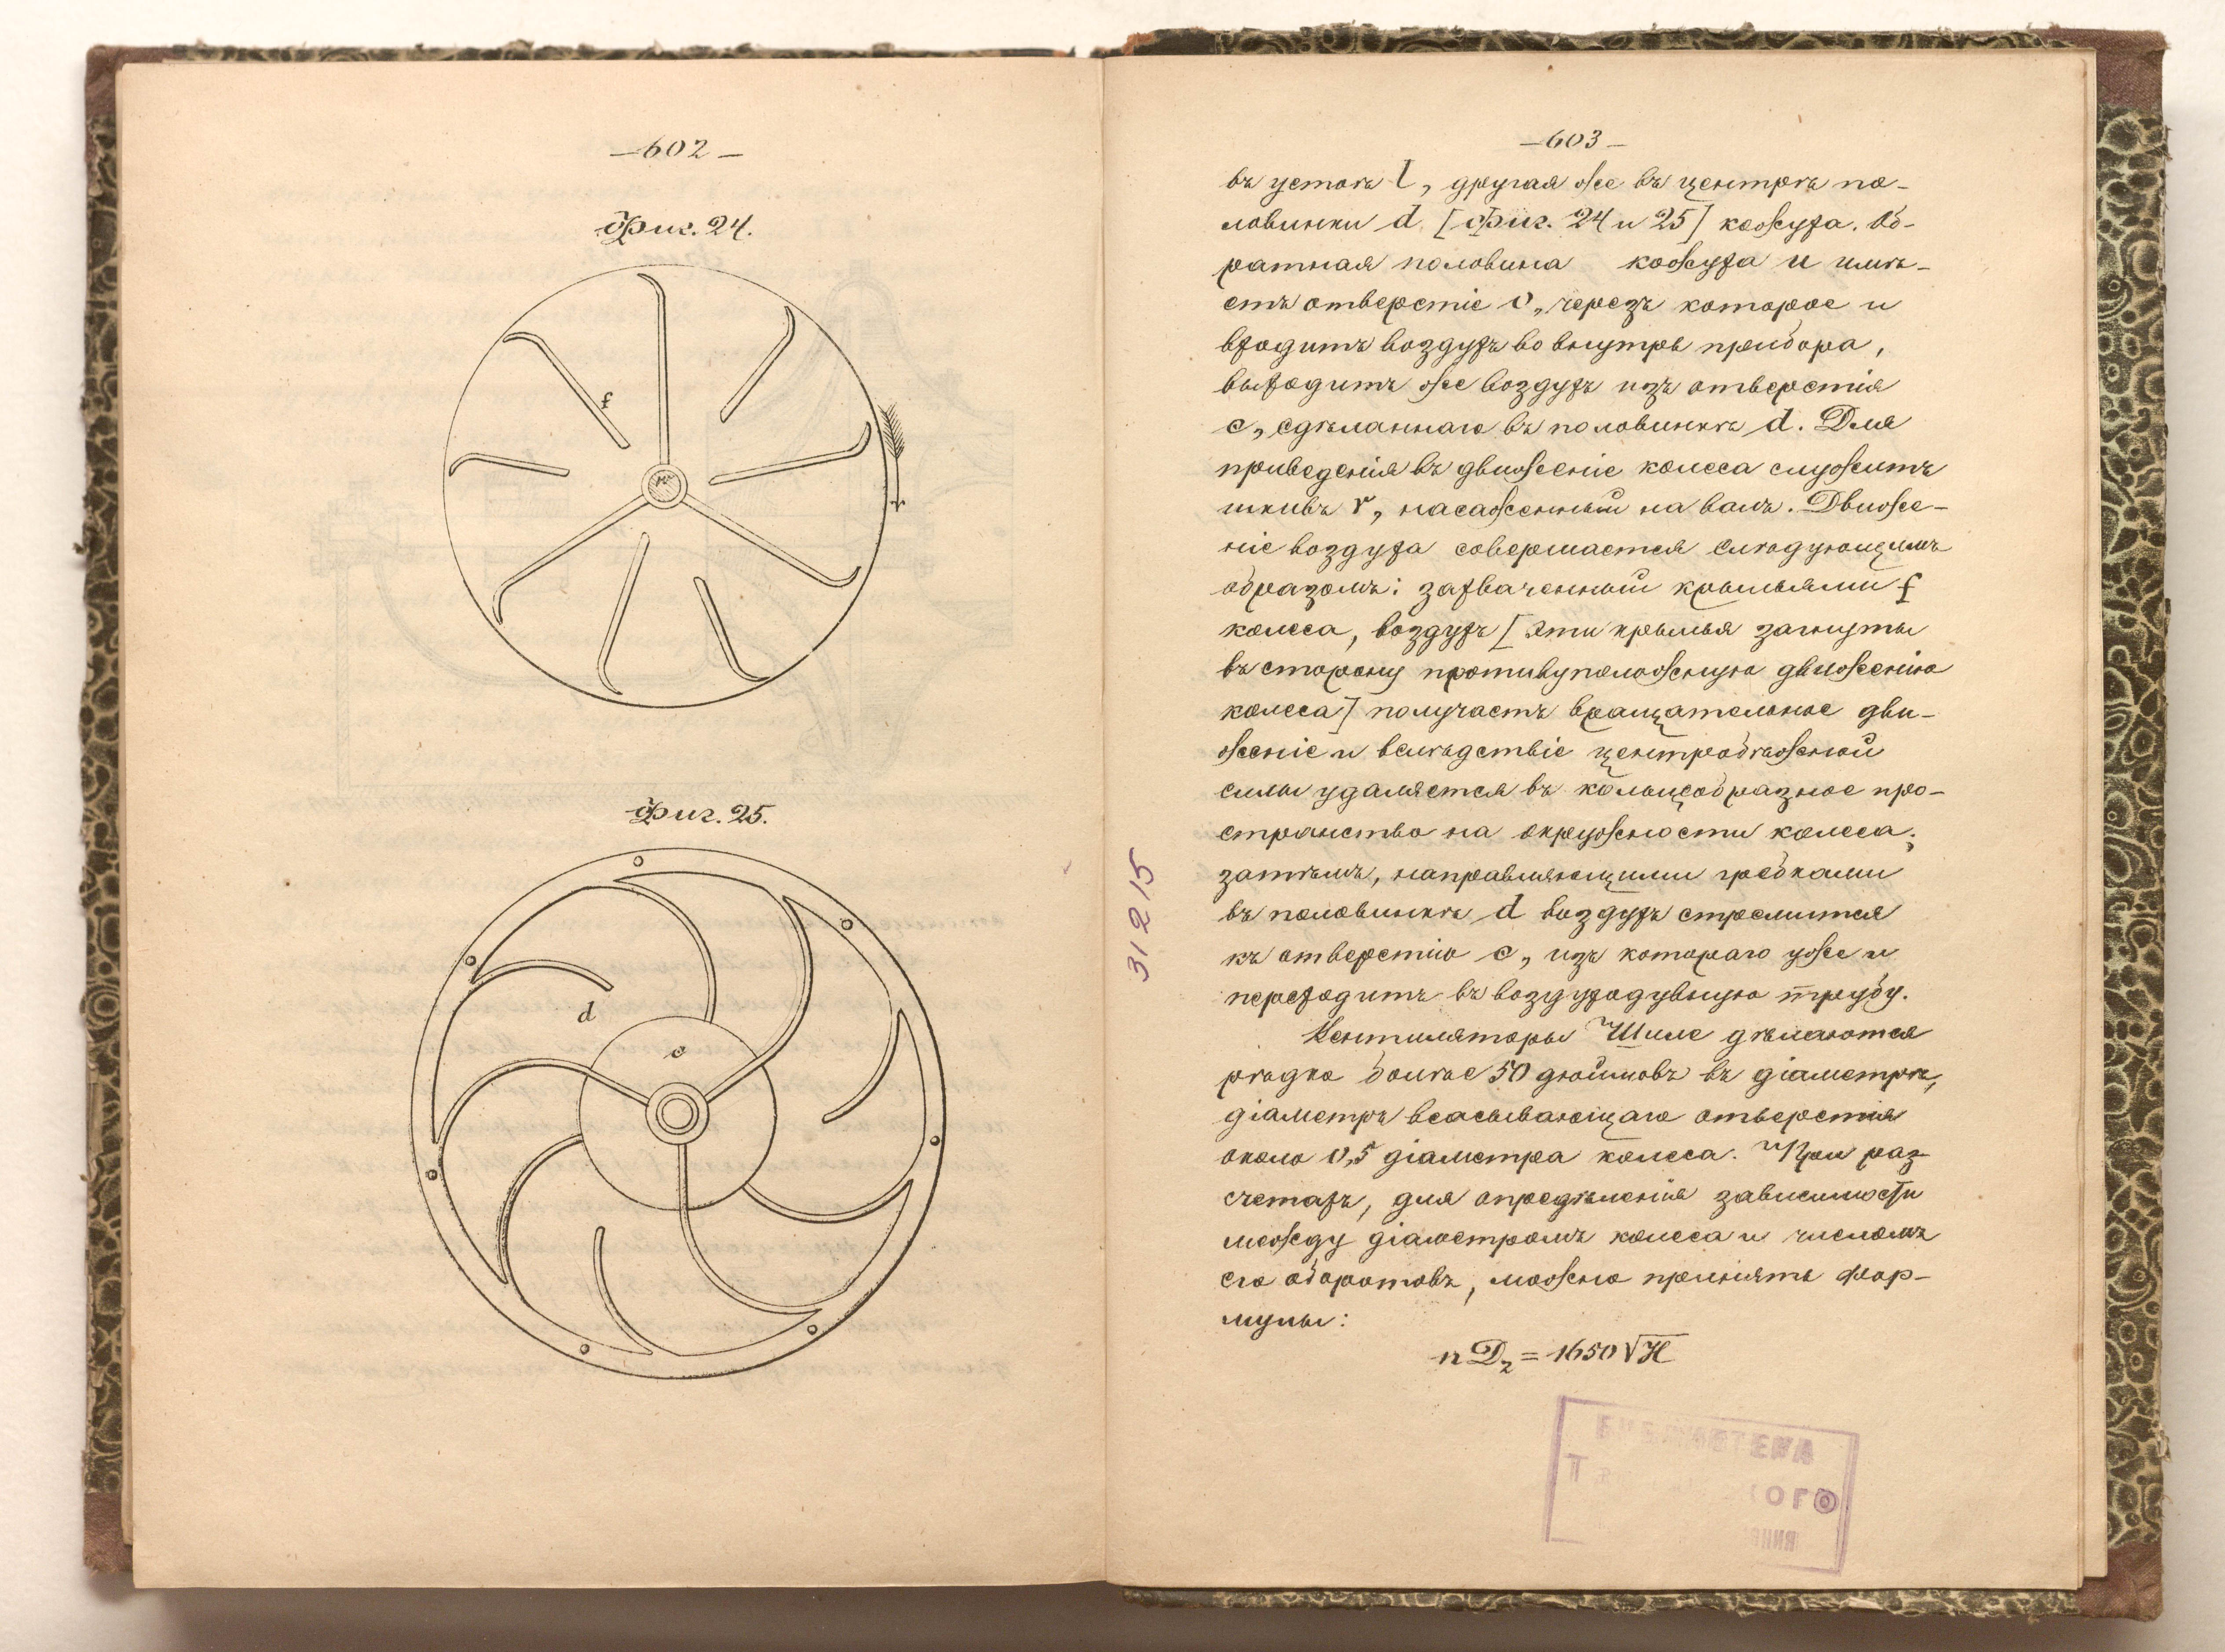 — 602 —
Фиг. 24.
f
Фиг. 25.
d
c
— 603 —
въ устоѣ l, другая же въ центрѣ по-
ловинки d [фиг. 24 и 25] кожуха. Об-
ратная половина кожуха и имѣ-
етъ отверстіе o, черезъ которое и
входитъ воздухъ во внутрь прибора,
выходитъ же воздухъ изъ отверстія
c, сдѣланнаго въ половинкѣ d. Для
приведенія въ движеніе колеса служитъ
шкивъ r, насаженный на валъ. Движе-
ніе воздуха совершается слѣдующимъ
образомъ: захваченный крыльями f
колеса, воздухъ [эти крылья загнуты
въ сторону противуположную движенію
колеса] получаетъ вращательное дви-
женіе и вслѣдствіе центробѣжной
силы удаляется въ кольцеобразное про-
странство на окружности колеса;
затѣмъ, направляющими гребками
въ половинкѣ d воздухъ стремится
къ отверстію c, изъ котораго уже и
переходитъ въ воздуходувную трубу.
Вентиляторы Шиле дѣлаются
рѣдко болѣе 50 дюймовъ въ діаметрѣ,
діаметръ всасывающаго отверстія
около 0,5 діаметра колеса. При раз-
счетахъ, для опредѣленія зависимости
между діаметромъ колеса и числомъ
его оборотовъ, можно принять фор-
мулы:
n D₂ = 1650 √H
31215
БИБЛИОТЕКА